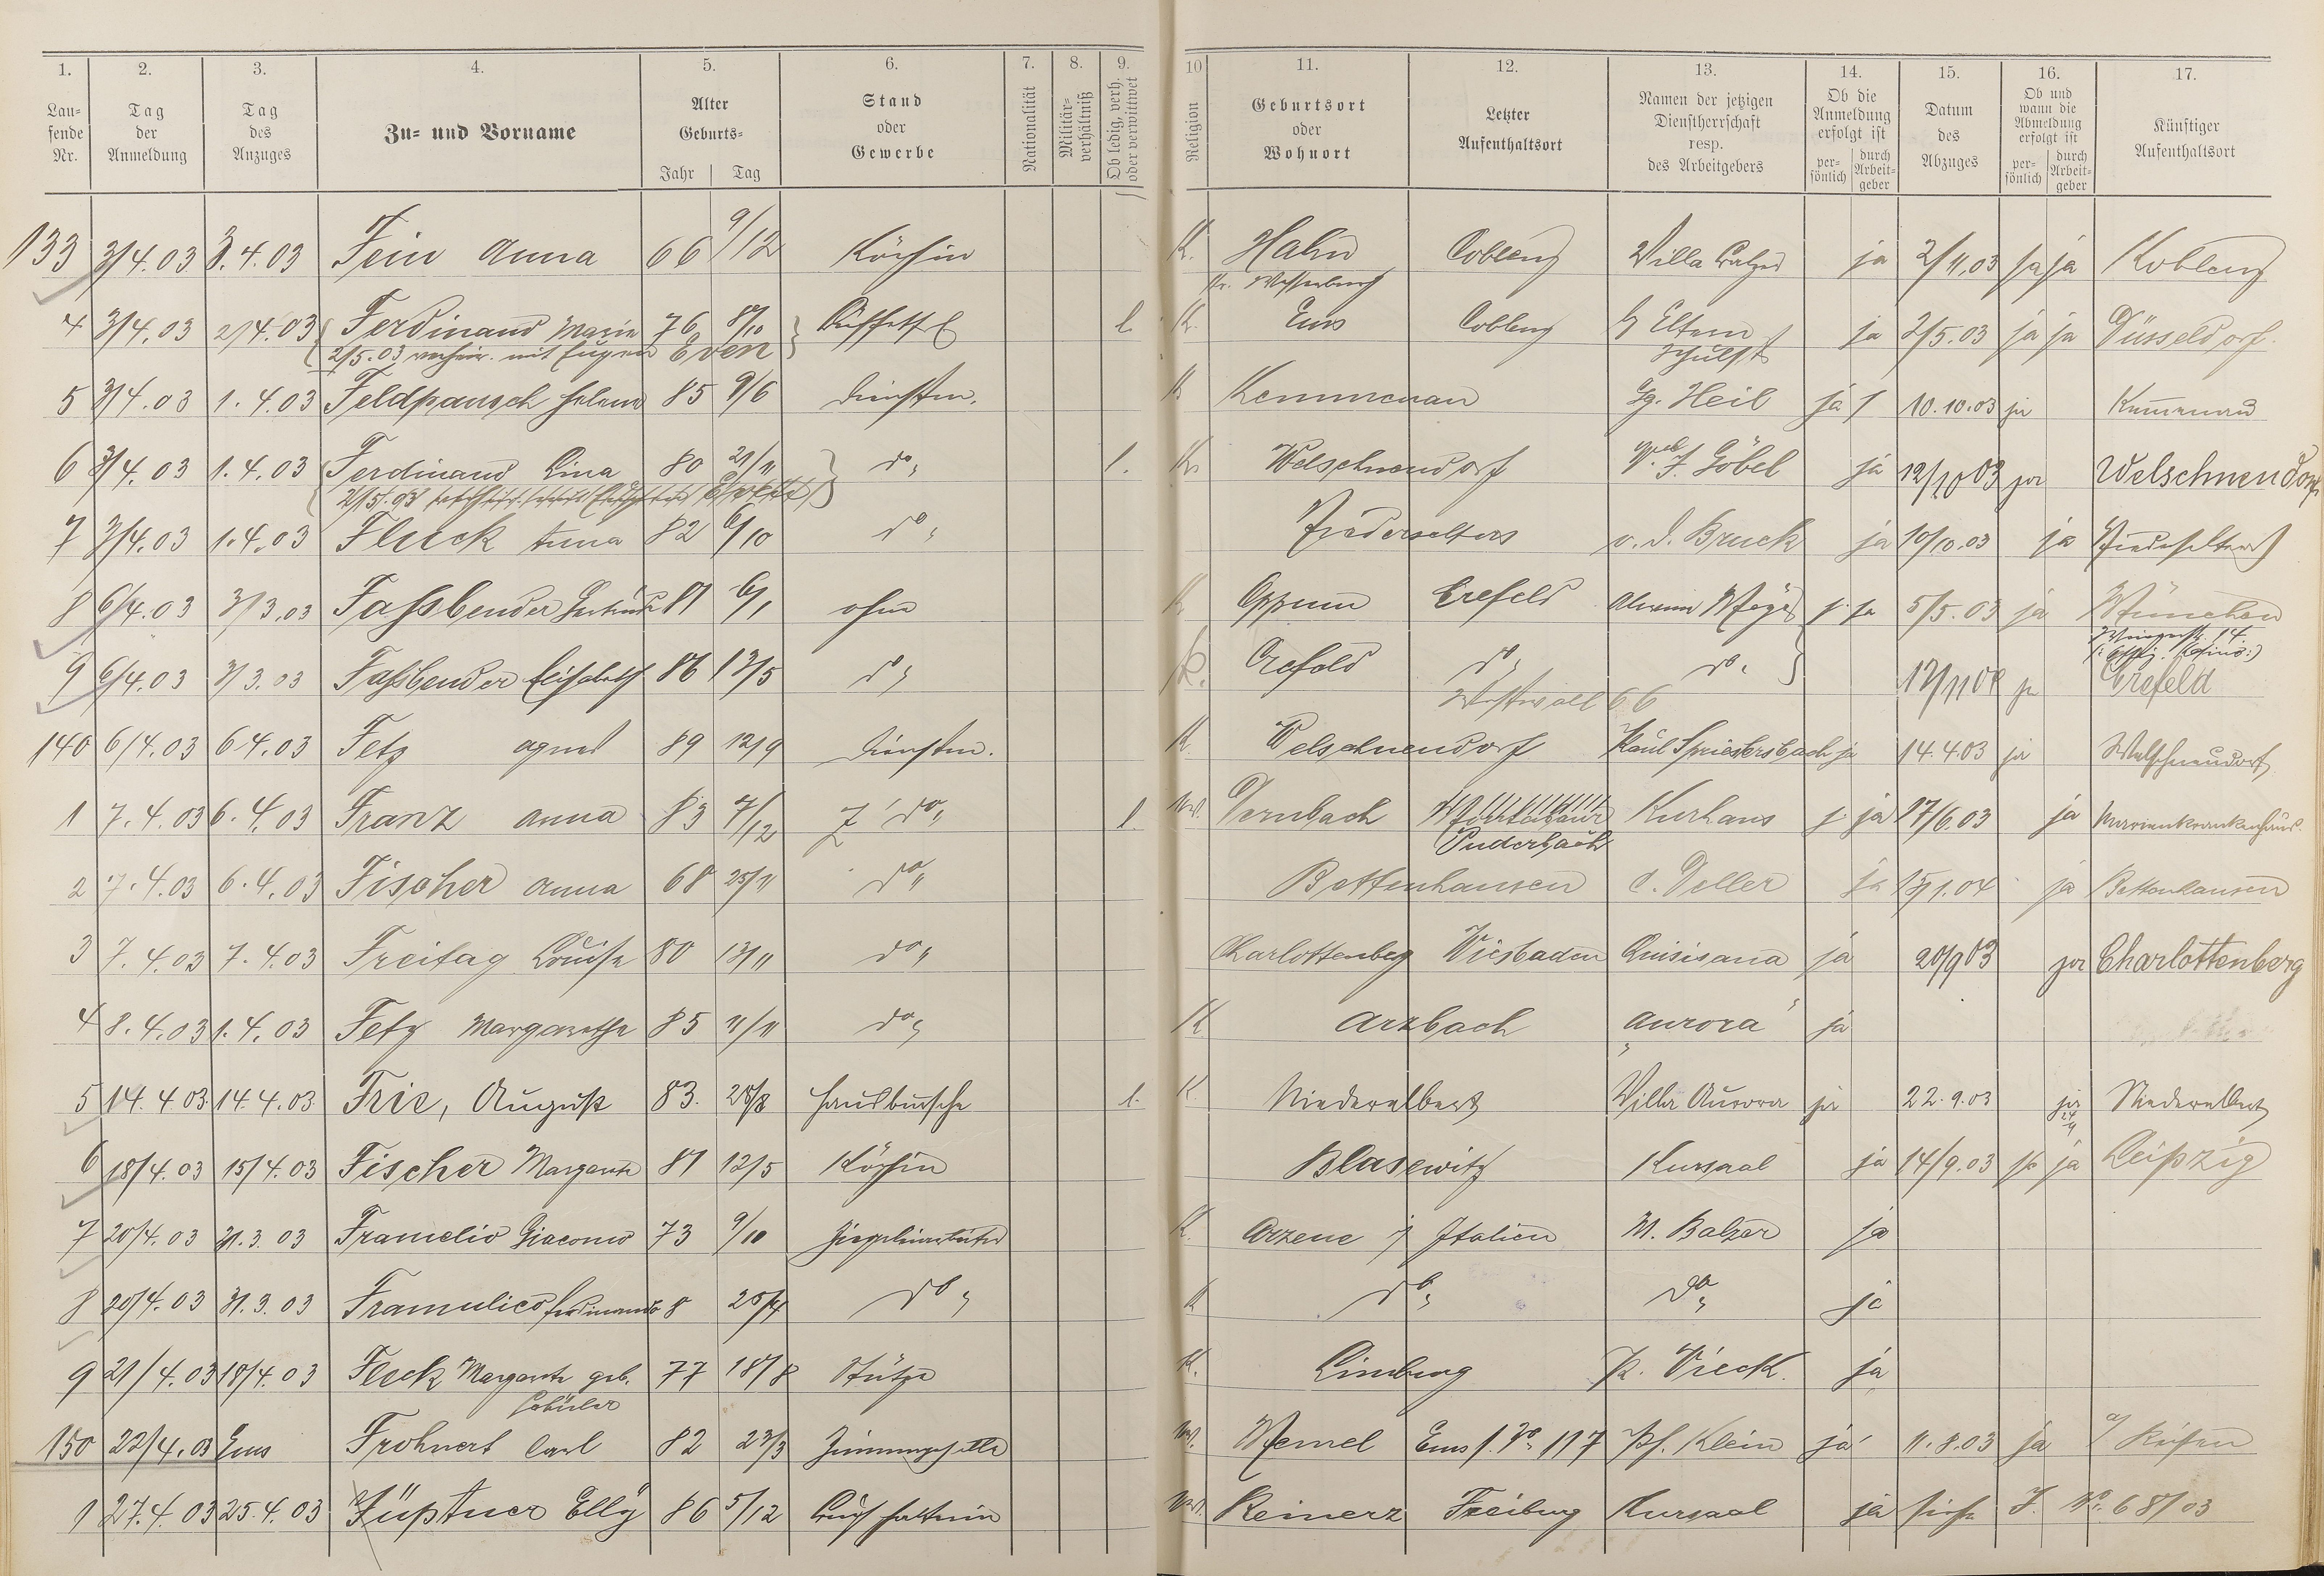 1. 2. 3. 4. 5. 6. 7. 8. 9. 10 11. 12. 13. 14. 15. 16. 17.
Lau-
fende
Nr.
Tag
der
Anmeldung
Tag
des
Anzuges
Zu- und Vorname
Alter
Geburts-
Jahr Tag
Stand
oder
Gewerbe
Nationalität
Militär-
verhältniß
Ob ledig, verh.
oder verwittwet
Religion
Geburtsort
oder
Wohnort
Letzter
Aufenthaltsort
Namen der jetzigen
Dienstherrschaft
resp.
des Arbeitgebers
Ob die
Anmeldung
erfolgt ist
per-
sönlich
durch
Arbeit-
geber
Datum
des
Abzuges
Ob und
wann die
Abmeldung
erfolgt ist
per-
sönlich
durch
Arbeit-
geber
Künftiger
Aufenthaltsort
133 3/4.03 3.4.03 Fein Anna 66 9/12 Köchin K. Hahn Coblenz Villa Balzer ja 2/11.03 ja ja Koblenz
Kr. Westerburg
4 3/4.03 2/4.03 Ferdinand Marie 76 8/10 Buffetf l. K. Ems Coblenz b/ Eltern ja 2/5.03 ja ja Düsseldorf.
2/5.03 verheir. mit Eugen Even Schulstr
5 3/4.03 1.4.03 Feldpausch Helene 85 9/6 Dienstm. K Kemmenau Hg. Heil ja 10.10.03 ja Kemmenau
6 3/4.03 1.4.03 Ferdinand Lina 80 21/11 do l. K. Welschneudorf J. Göbel ja 12/10 03 ja Welschneudorf
7 3/4.03 1.4.03 Fluck Anna 82 6/10 do Niederselters v. d. Bruck ja 10/10.03 ja Niederselters
8 6/4.03 31/3.03 Faßbender Gertrude 81 6/1 ohne K. Oppum Crefeld j ja 5/5.03 ja München
9 6/4.03 31/3.03 Faßbender Elisabeth 86 13/5 do K. Crefeld do do ja Crefeld
Westwall 66
140 6/4.03 6 4.03 Fetz Agnes 89 12/9 Dienstm. K. Welschneudorf Paul Spriestersbach ja 14.4.03 ja Welschneudorf
1 7.4.03 6.4.03 Franz Anna 83 7/12 do l. Dernbach Montabaur Kurhaus j ja 17/6.03 ja Marienkrankenhaus.
Puderbach
2 7.4.03 6.4.03 Fischer Anna 68 25/11 do Bettenhausen C. Deller ja 15/1.04 ja Bettenhausen
3 7.4.03 7.4.03 Freitag Louise 80 13/11 do Charlottenberg Wiesbaden Quisisana ja 20/9 03 ja Charlottenberg
4 8.4.03 1.4.03 Fetz Margarethe 85 11/11 do K. Arzbach "Aurora" ja
5 14.4 03 14.4.03 Frie, August 83. 28/8 Hausbursche l. K. Niederelbert Villa Aurora ja 22.9.03 ja Niederelbert
6 18/4.03 15/4.03 Fischer Margarete 81 12/5 Köchin Blasewitz Kursaal ja 14/9.03 ja ja Leipzig
7 20/4.03 31.3.03 Framelio Giacomo 73 9/10 Ziegeleiarbeiter K. Arzene i/ Italien M. Balzer ja
8 20/4.03 31.3.03 Framulico Ferdinando 8 25/4 do K do do ja
9 21/4.03 18/4.03 Fleck Margarete geb. 77 18/8 Stütze K. Limburg K. Vieck. ja
150 22/4.03 Ems Frohnert Carl 82 23/3 Zimmergeselle Memel Ems f. No 117 Ph. Klein ja 11.8.03 ja a/ Reisen
1 27.4.03 25.4.03 Füptner Elly 86 5/12 Buchhalterin Reinerz Freiburg Kursaal ja siehe F. No. 68/03